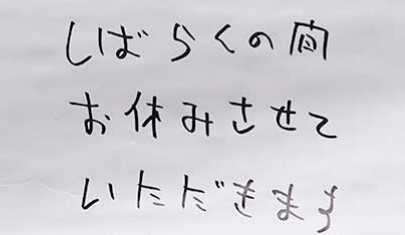 しばらくの間
お休みさせて
いただきます